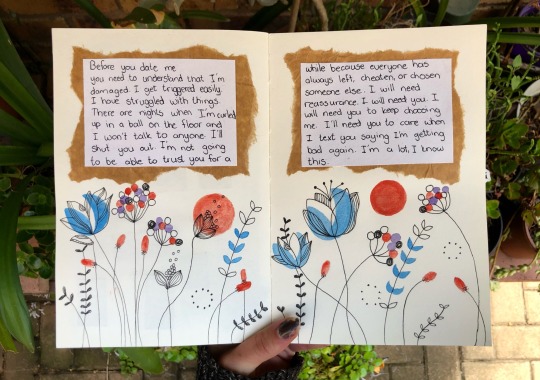 Before you date me
you need to understand that I'm
damaged. I get triggered easily.
I have struggled with things.
There are nights when I'm curled
up in a ball on the floor and
I won't talk to anyone. I'll
shut you out. I'm not going
to be able to trust you for a
while because everyone has
always left, cheated, or chosen
someone else. I will need
reassurance. I will need you. I
will need you to keep choosing
me. I'll need you to care when
I text you saying I'm getting
bad again. I'm a lot, I know
this.